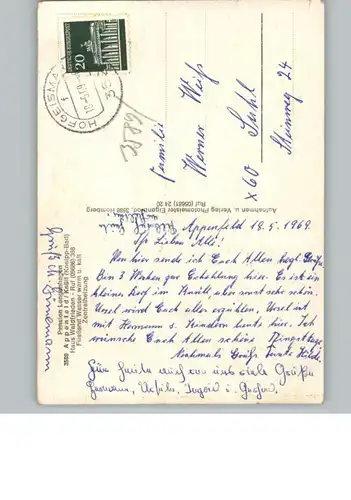 HOFGEISMAR
DEUTSCHE BUNDESPOST
20
Familie
Werner Weiß
X60 Suhl
Steinweg 24
Appenfeld 18.5.1969
Ihr Lieben Alle!
Von hier sende ich Euch Allen herzl. Grüße.
Bin 3 Wochen zur Erholung hier. Es ist ein
kleiner Ort im Knüll, aber sehr schön.
Ursel wird Euch alles erzählen, Ursel ist
mit Hermann u. Kindern heute hier. Ich
wünsche Euch Allen schöne Pfingsttage
Nochmals Grüße Tante Hilde
Für heute auch von uns viele Grüße
Hermann, Ursula,
Aufnahmen u. Verlag Photomeister Eigenbrod, 3588 Homberg
Ruf (05681) 24 20
Pension Landhaus
3589 Appenfeld / Knüll (Kneipp-Bad)
Haus Waldfrieden - Ruf (05686) 358
Fließend Wasser warm u. kalt
Zentralheizung